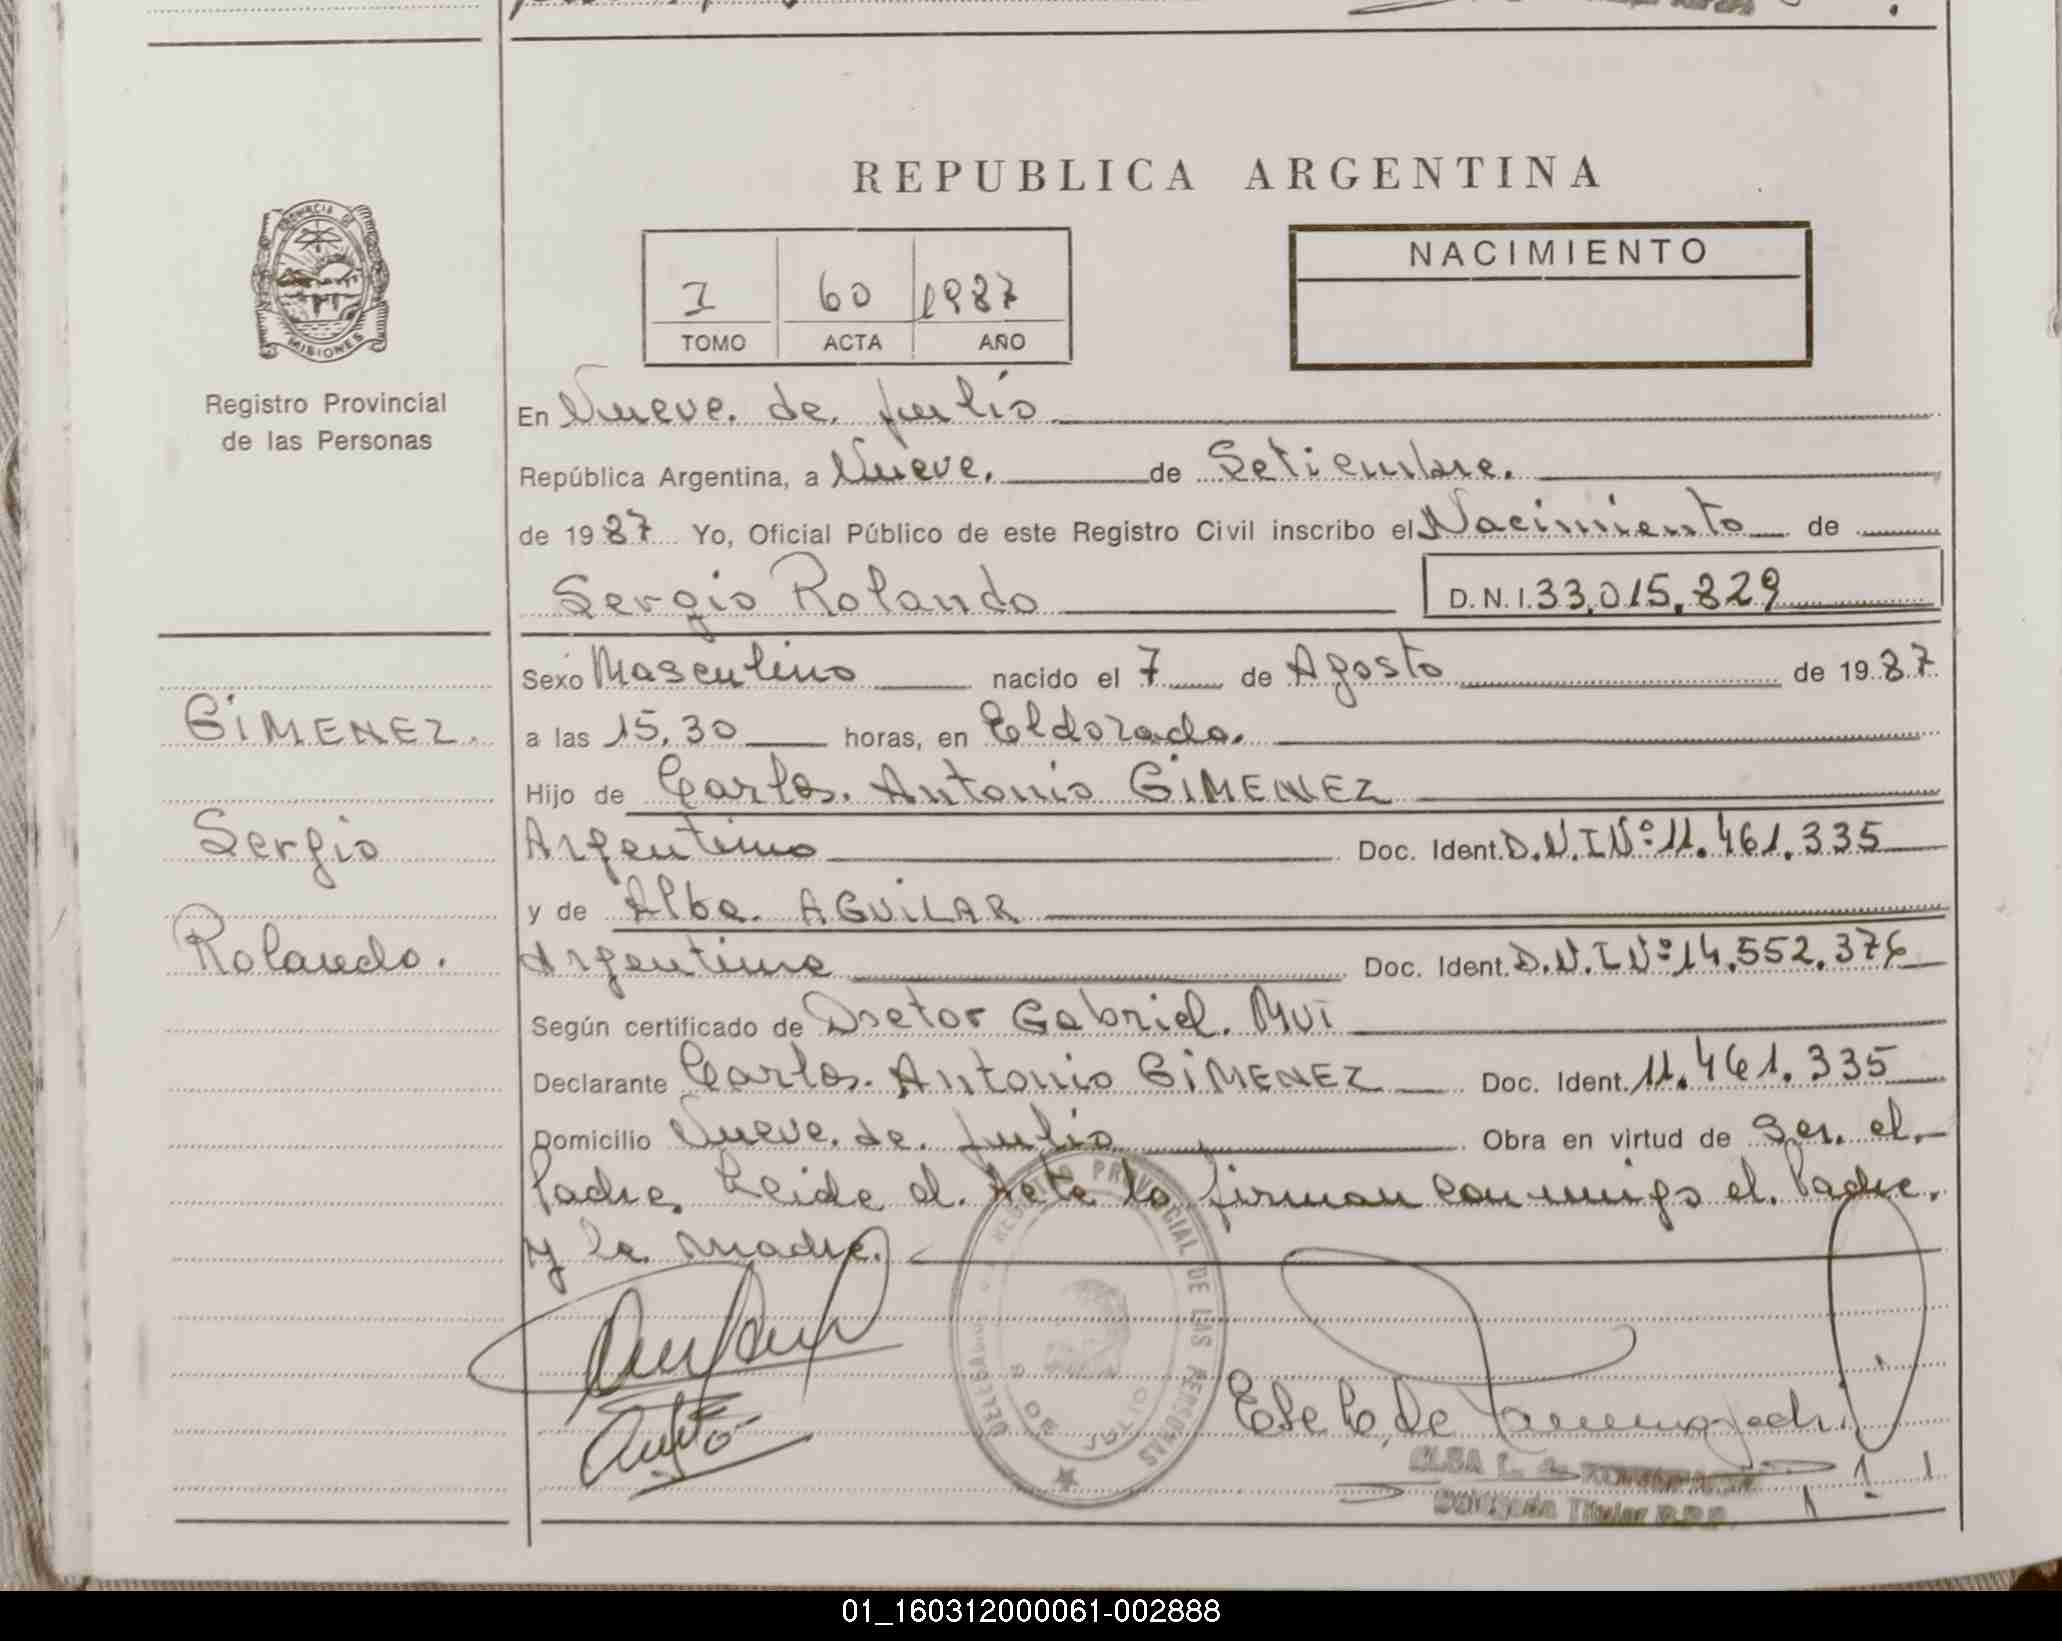 REPUBLICA ARGENTINA
PROVINCIA DE
MISIONES
Registro Provincial
de las Personas
I 60 1987
TOMO ACTA AÑO
NACIMIENTO
En Nueve. de. Julio
República Argentina, a Nueve. de Setiembre.
de 1987 Yo, Oficial Público de este Registro Civil inscribo el Nacimiento de
Sergio Rolando D.N.I. 33.015.829
GIMENEZ.
Sergio
Rolando.
Sexo Masculino nacido el 7 de Agosto de 1987
a las 15,30 horas, en Eldorado.
Hijo de Carlos. Antonio GIMENEZ
Argentino Doc. Ident. D.N.I Nº 11.461.335
y de Alba. AGUILAR
Argentina Doc. Ident. D.N.I Nº 14.552.376
Según certificado de Doctor Gabriel. MUI
Declarante Carlos. Antonio GIMENEZ Doc. Ident. 11.461.335
Domicilio Nueve. de. Julio Obra en virtud de Ser. el.
Padre. Leida el. Acta la firman conmigo el. Padre.
y la madre.
REGISTRO PROVINCIAL DE LAS PERSONAS
DELEGACION
9 DE JULIO
ELSA
Delegada Titular R.P.P.
01_160312000061-002888